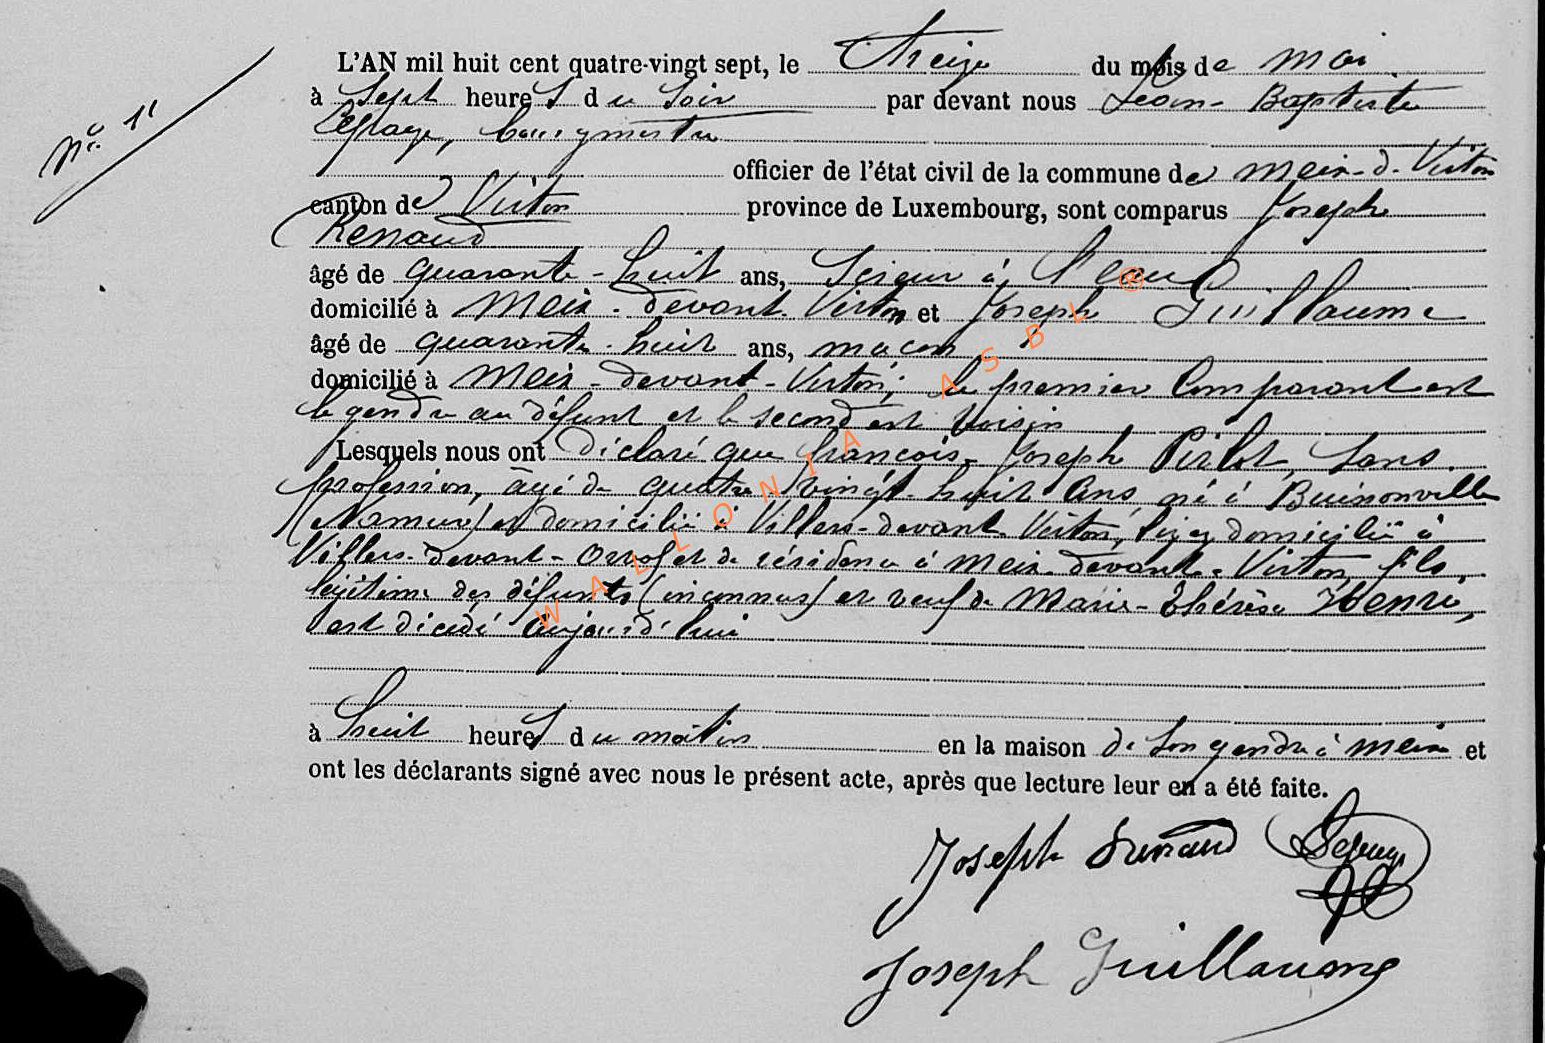 N° 11
L'AN mil huit cent quatre-vingt sept, le treize du mois de mai
à sept heures du soir par devant nous Jean-Baptiste
Lepage, bourgmestre
officier de l'état civil de la commune de Meix-d-Virton
canton de Virton province de Luxembourg, sont comparus Joseph
Renaud
âgé de quarante-huit ans, scieur à l'eau
domicilié à Meix-devant Virton et Joseph Guillaume
âgé de quarante-huit ans, maçon
domicilié à Meix-devant-Virton; le premier comparant est
le gendre au défunt et le second est voisin
Lesquels nous ont déclaré que françois-Joseph Pirlot, sans
profession, âgé de quatre vingt-huit ans né à Buissonville
(Namur) et domicilié à Villers-devant Virton, lisez domicilié à
Villers-devant-Orval et de résidence à Meix-devant-Virton, fils
légitime des défunts (inconnus) et veuf de Marie-Thérèse Henri,
est décédé aujourd'hui
à huit heures du matin en la maison de son gendre à Meix et
ont les déclarants signé avec nous le présent acte, après que lecture leur en a été faite.
Joseph Renaud Lepage
Joseph Guillaume
WALLONIA ASBL ®